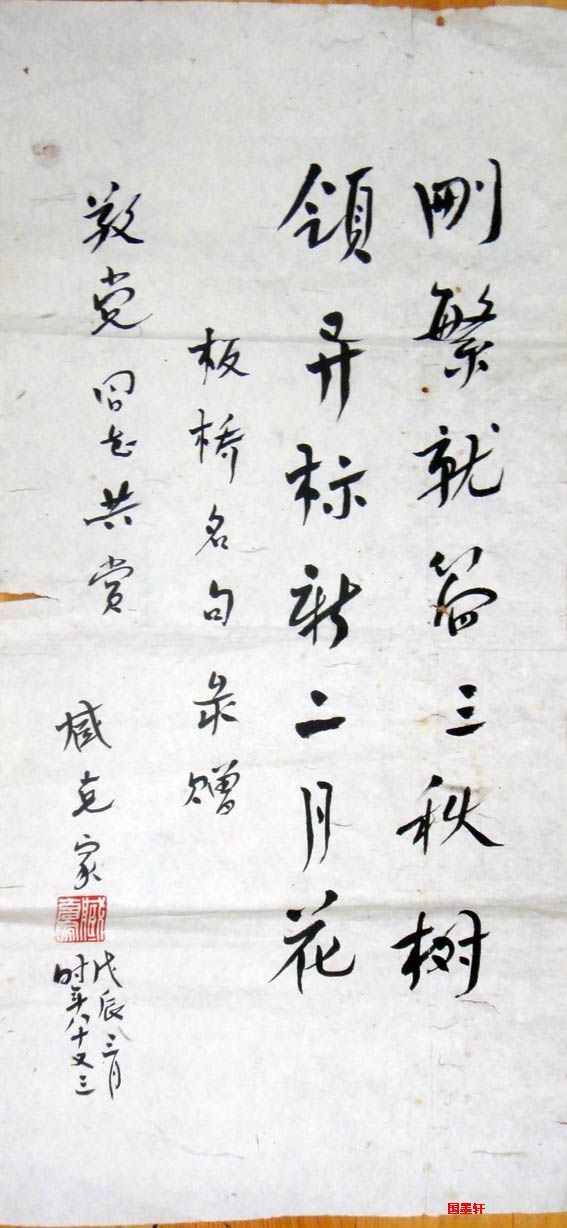 删繁就简三秋树
领异标新二月花
板桥名句录赠
敬党同志共赏
臧克家
戊辰三月
时年八十又三
国墨轩